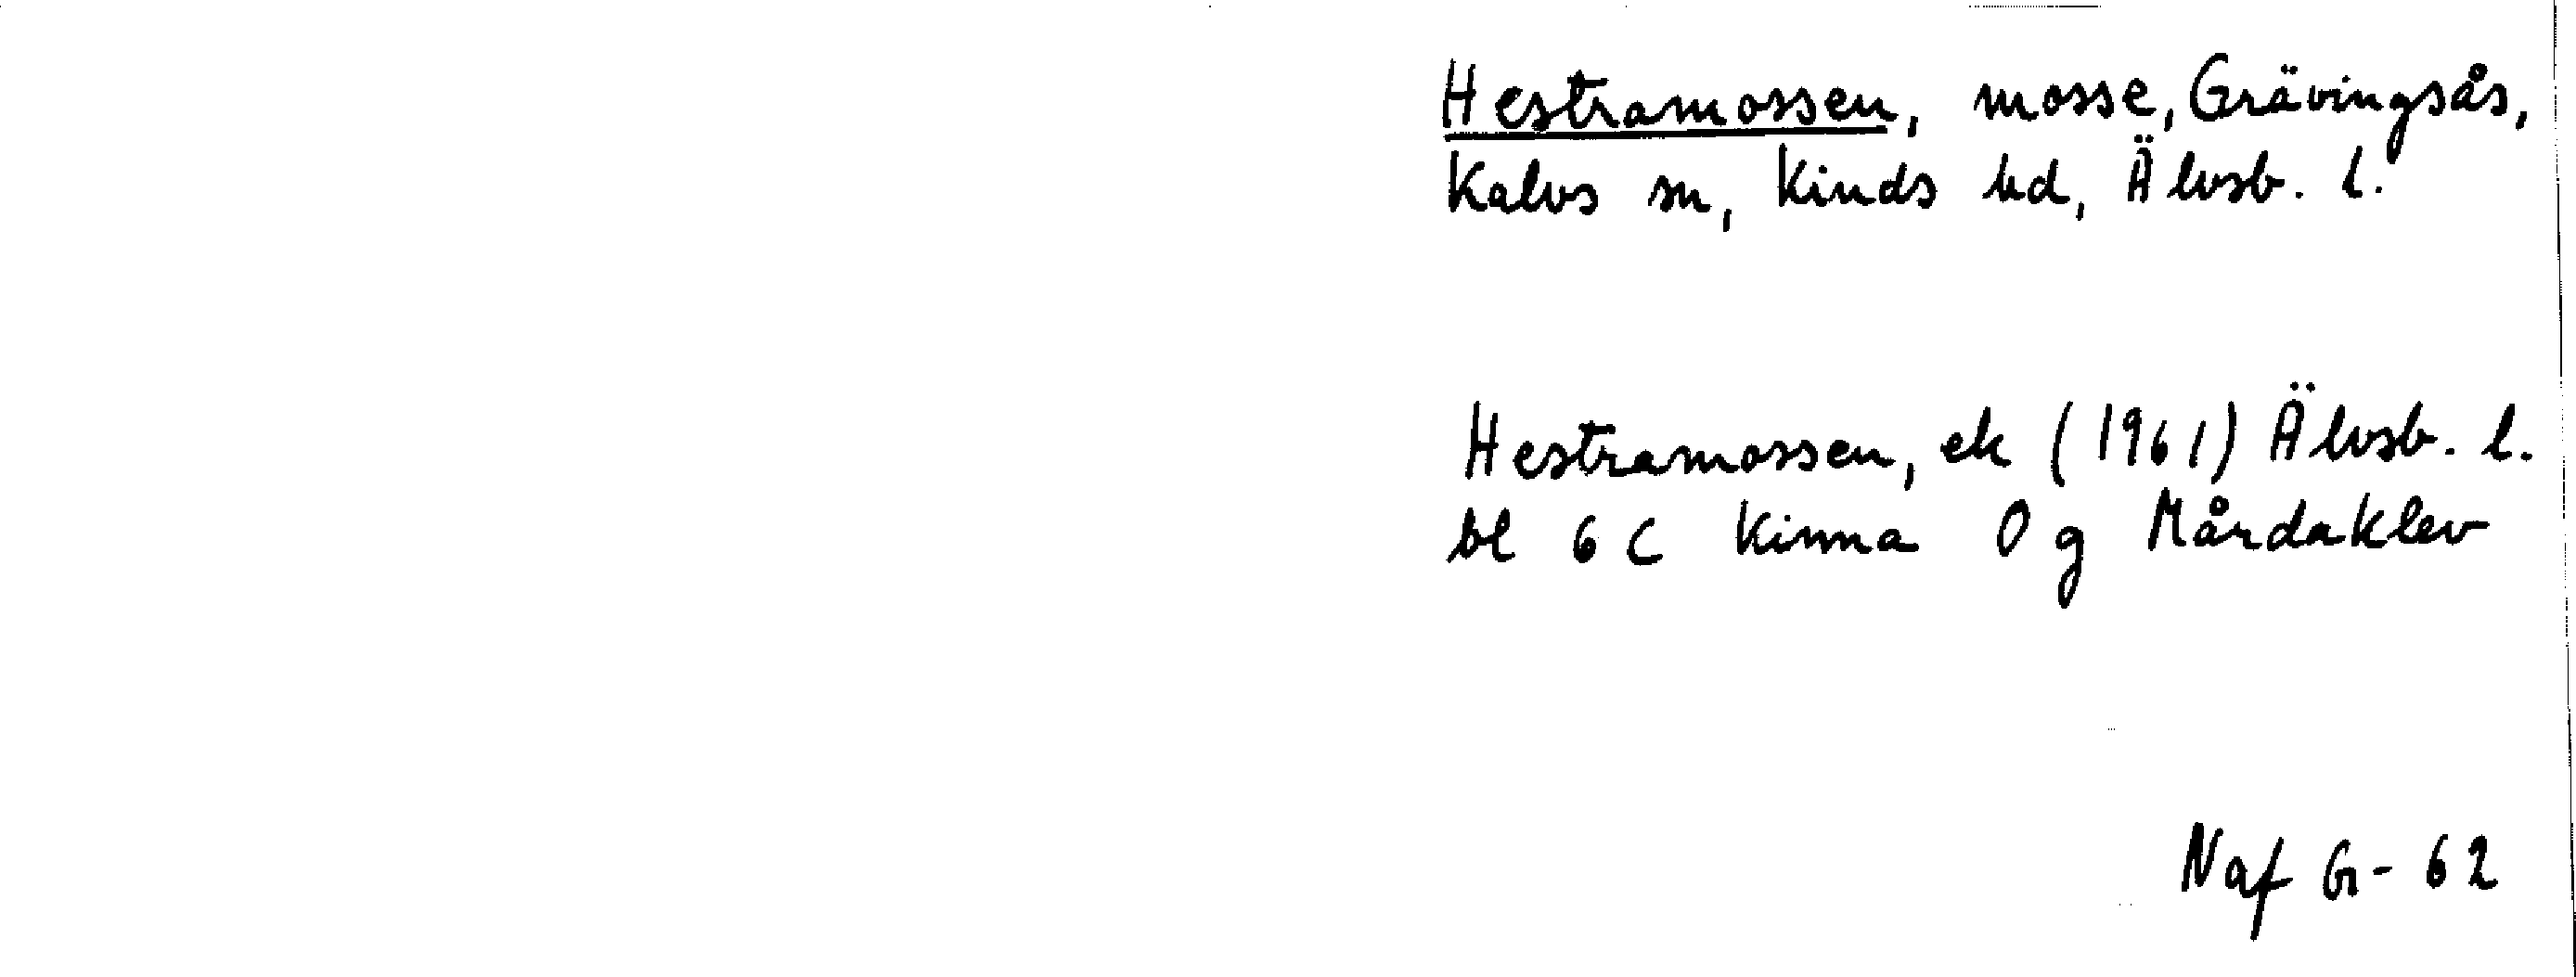 Hestramossen, mosse, Grävingsås,
Kalvs sn, Kinds hd, Älvsb. l.
Hestramossen, ek (1961) Älvsb. l.
bl 6 C Kinna 0 g Mårdaklev
Naf Gr-62